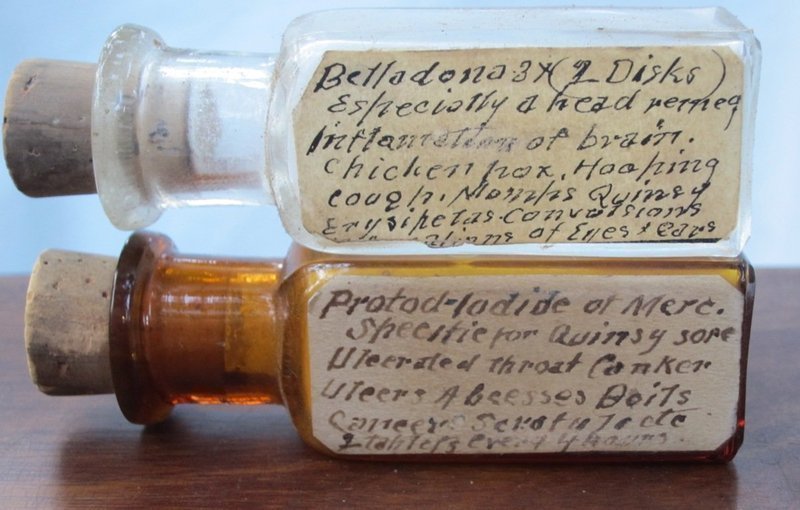 Belladona 3x (2 Disks)
Especially a head remeq
Inflamation of brain.
Chicken pox. Hooping
cough. Momps Quinsy
Erysipelas. Convulsions
of Eyes & Ears
Protod-Iodide of Merc.
Specific for Quinsy sore
Ulcerated throat Canker
Ulcers Abcesses Boils
Cancers Scrofula etc
2 tablets every 4 hours.